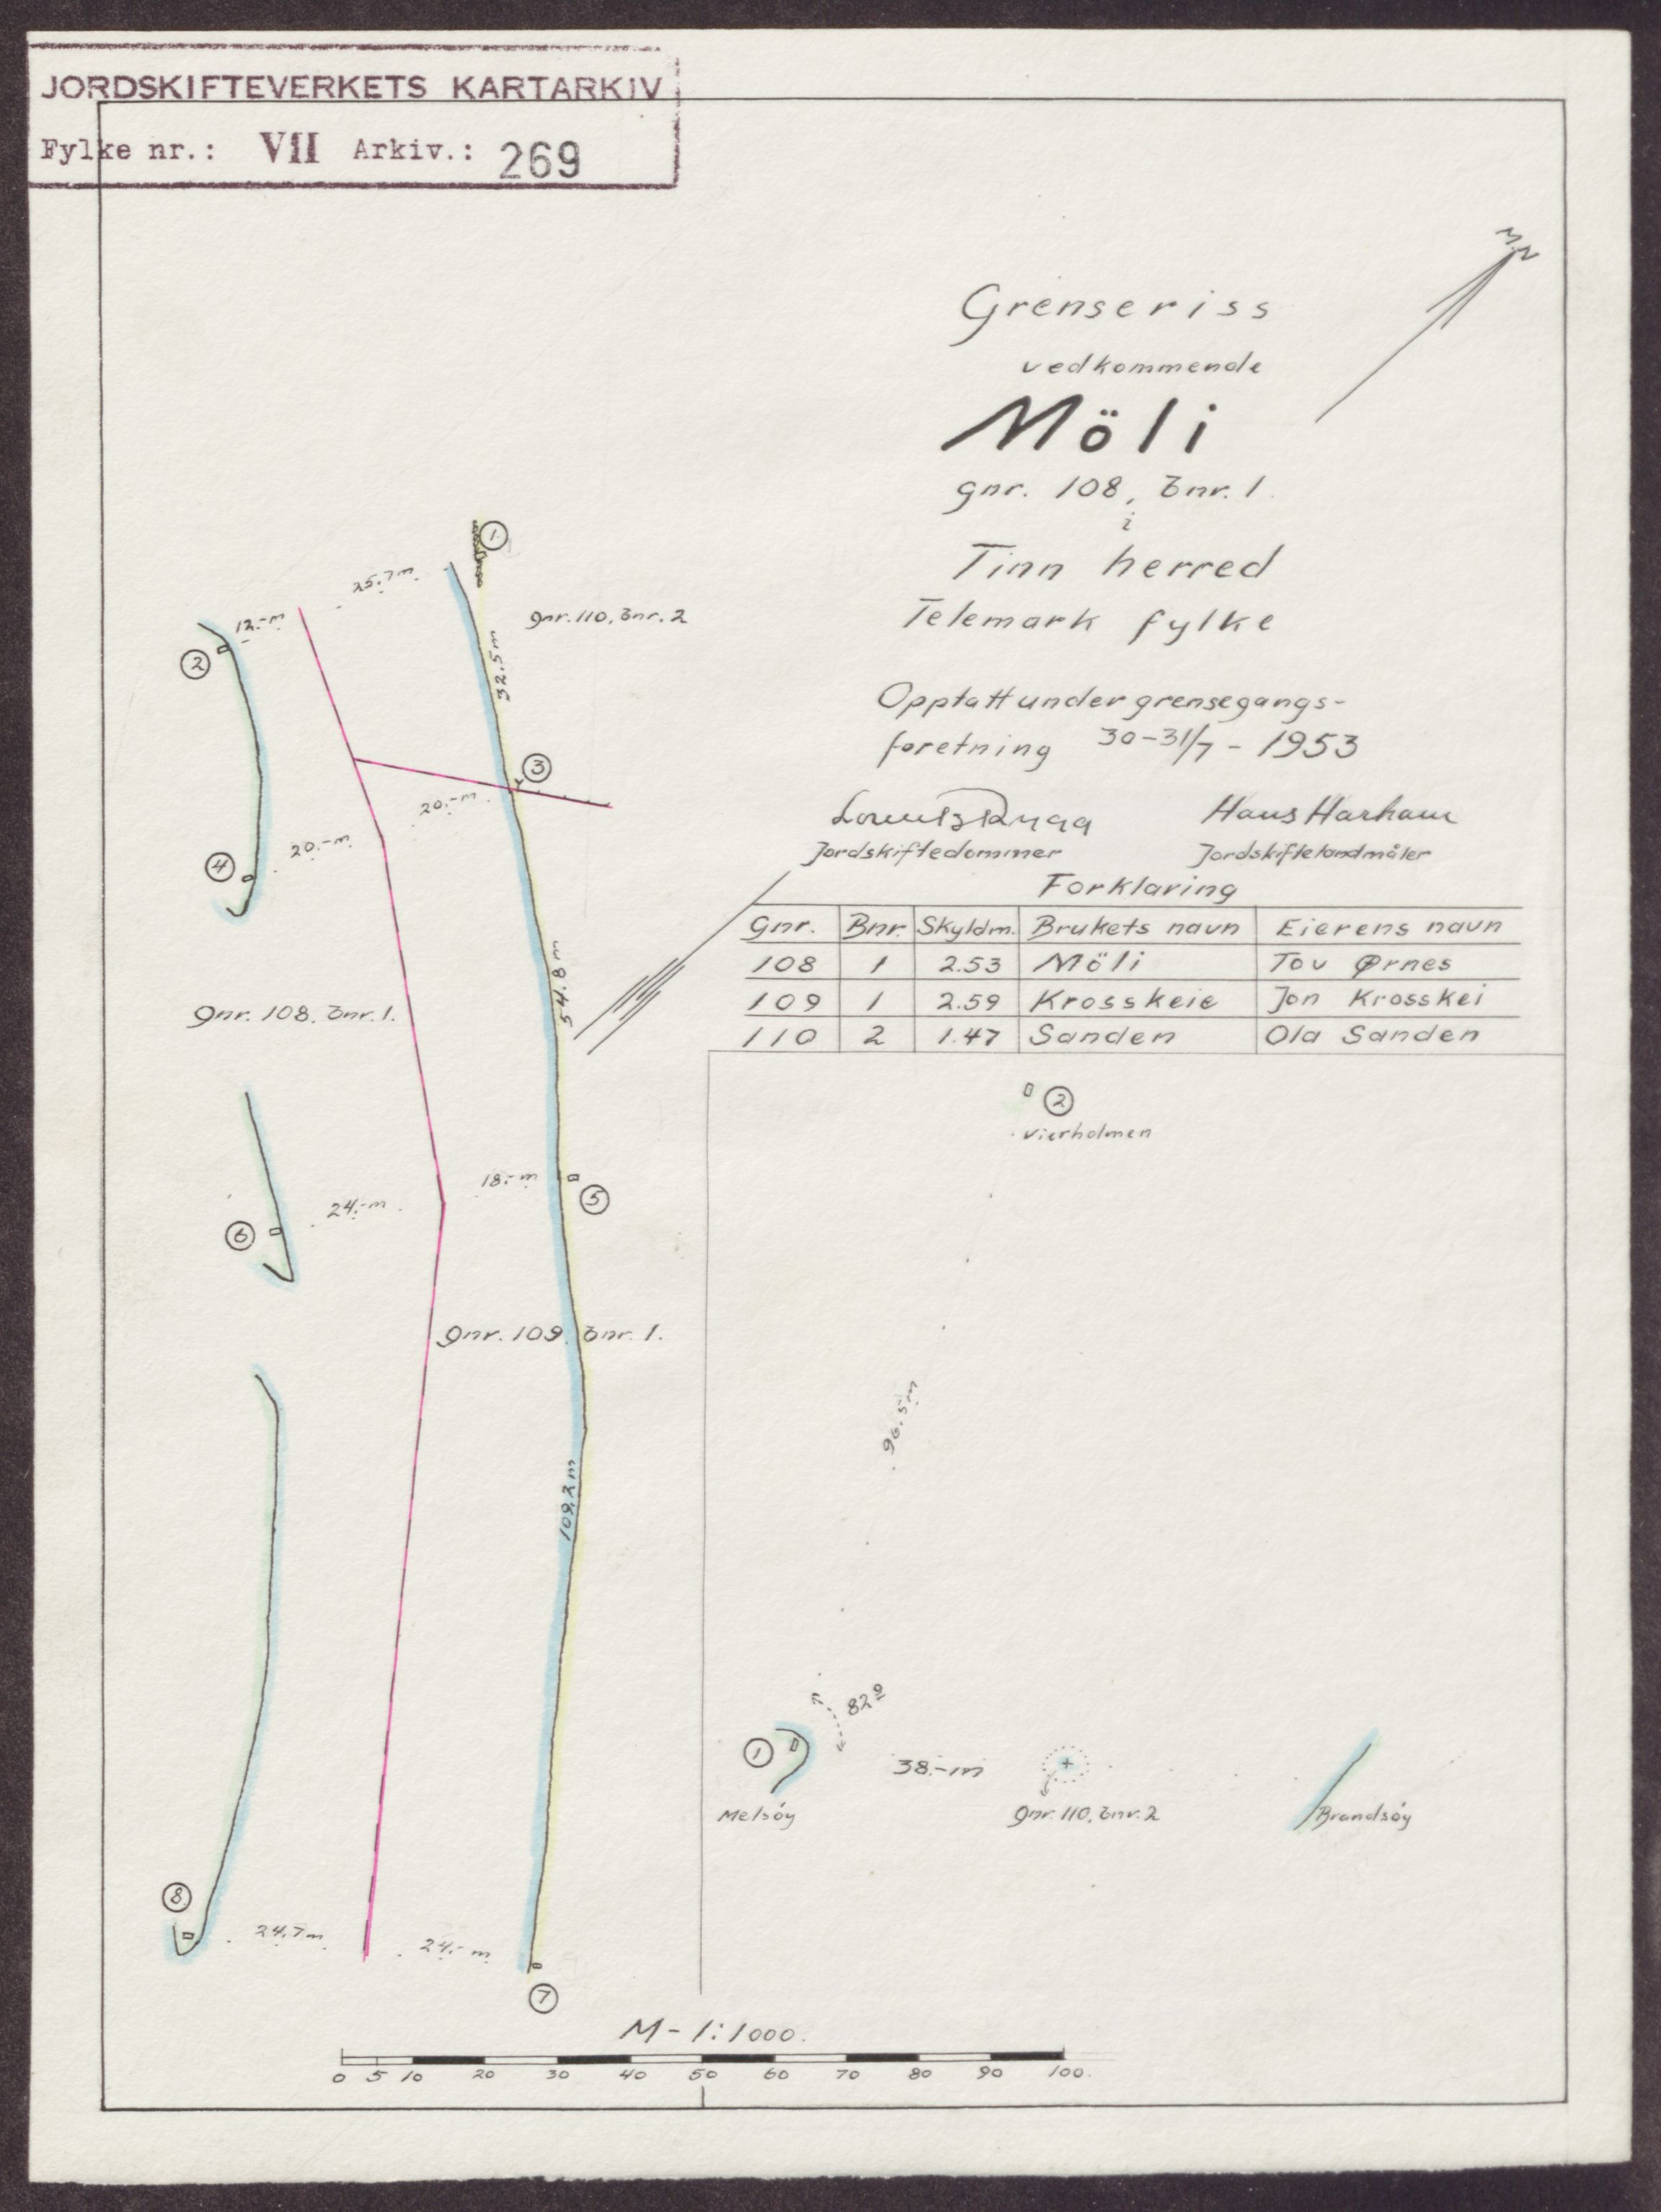 JORDSKIFTEVERKETS KARTARKIV
Fylke nr.: VII Arkiv.: 269
Grenseriss
vedkommende
Möli
gnr. 108, bnr. 1
i
Tinn herred
Telemark fylke
Opptatt under grensegangs-
foretning 30-31/7 - 1953
Hans
Jordskiftedommer
Jordskiftelandmåler
Forklaring
Gnr. Bnr. Skyldm. Brukets navn Eierens navn
108 1 2.53 Möli Tov Ørnes
109 1 2.59 Krosskeie Jon Krosskei
110 2 1.47 Sanden Ola Sanden
1
25.7 m
12.- m
gnr. 110, bnr. 2
2
32.5 m
3
20.- m
20.- m
4
54.8 m
gnr. 108, bnr. 1.
18.- m
5
24.- m
6
gnr. 109, bnr. 1.
109.2 m
8
24.7 m
24.- m
7
2
Vierholmen
96.5 m
82º
1
38.- m
Melsöy
gnr. 110, bnr. 2
Brandsöy
M - 1:1000.
0 5 10 20 30 40 50 60 70 80 90 100.